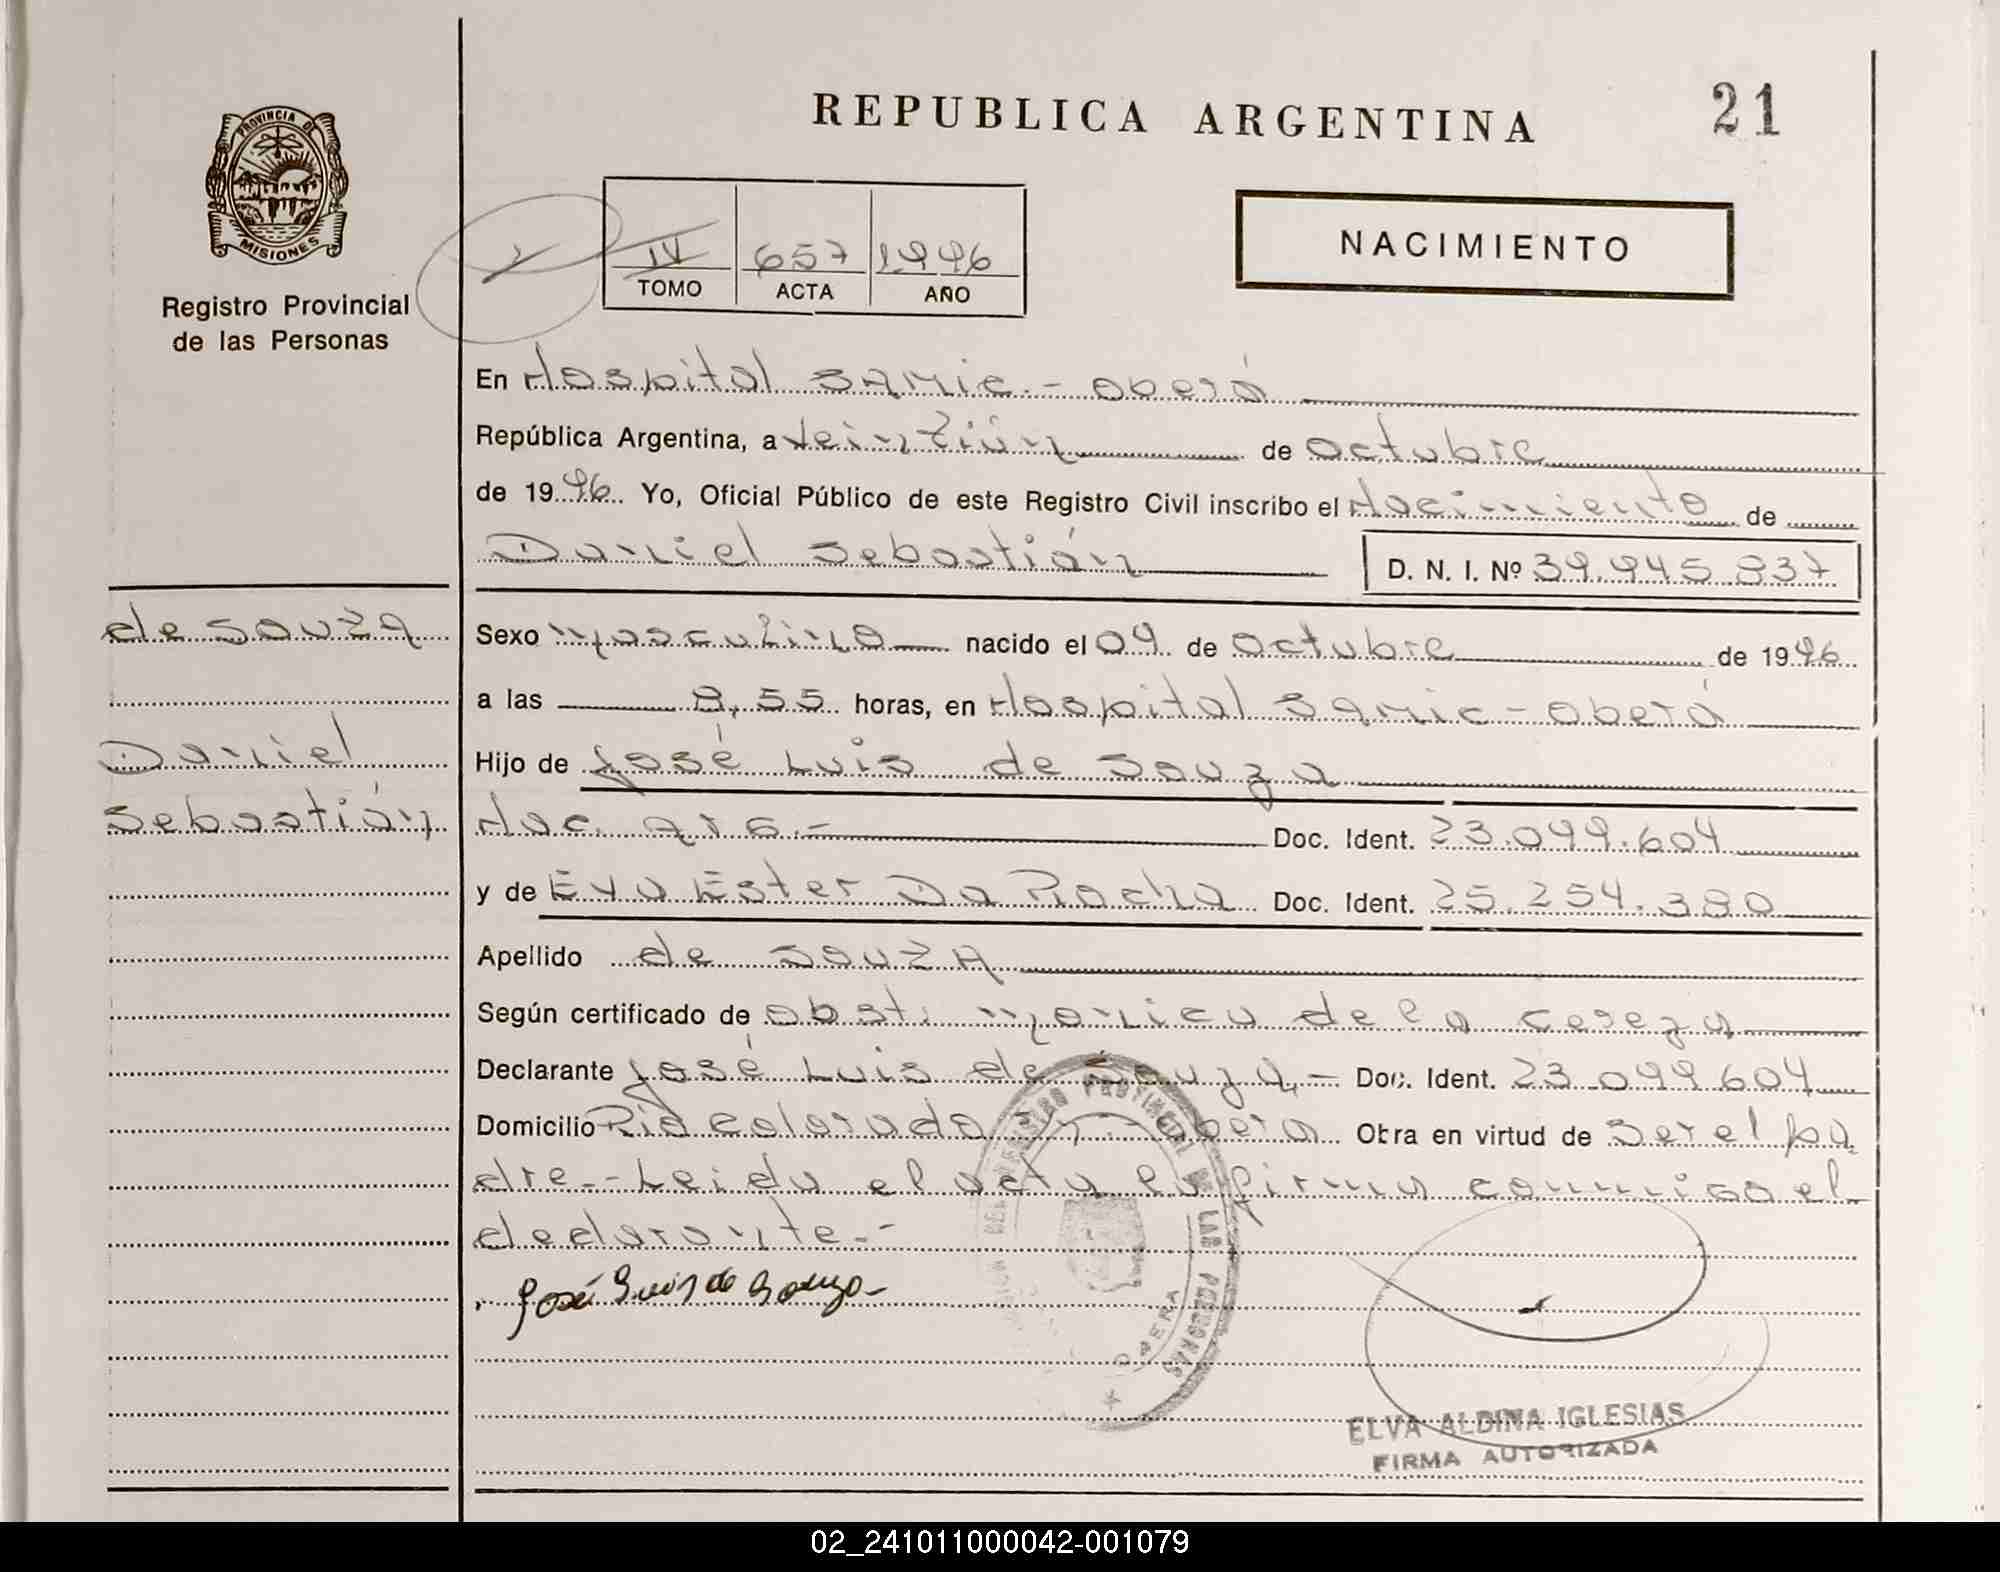 REPUBLICA ARGENTINA
21
PROVINCIA DE
MISIONES
Registro Provincial
de las Personas
IV 657 1996
TOMO ACTA AÑO
NACIMIENTO
En Hospital Samic.- Oberá
República Argentina, a veintiún de octubre
de 1996. Yo, Oficial Público de este Registro Civil inscribo el Nacimiento de
Daniel Sebastián D. N. I. Nº 39.945.837
de Souza
Daniel
Sebastián
Sexo Masculino nacido el 09 de Octubre de 1996
a las 8,55 horas, en Hospital Samic - Oberá
Hijo de José Luis de Souza
Nac. arg.- Doc. Ident. 23.099.604
y de Eva Ester Da Rocha Doc. Ident. 25.254.380
Apellido de Souza
Según certificado de obst. Monica de la
Declarante José Luis de Souza.- Doc. Ident. 23.099.604
Domicilio Rio Colorado - Oberá. Obra en virtud de ser el pa
dre.- Leida el acta la firma conmigo el
declarante.-
José Luis de Souza-
REGISTRO PROVINCIAL DE LAS PERSONAS
OBERA
ELVA ALDINA IGLESIAS
FIRMA AUTORIZADA
02_241011000042-001079